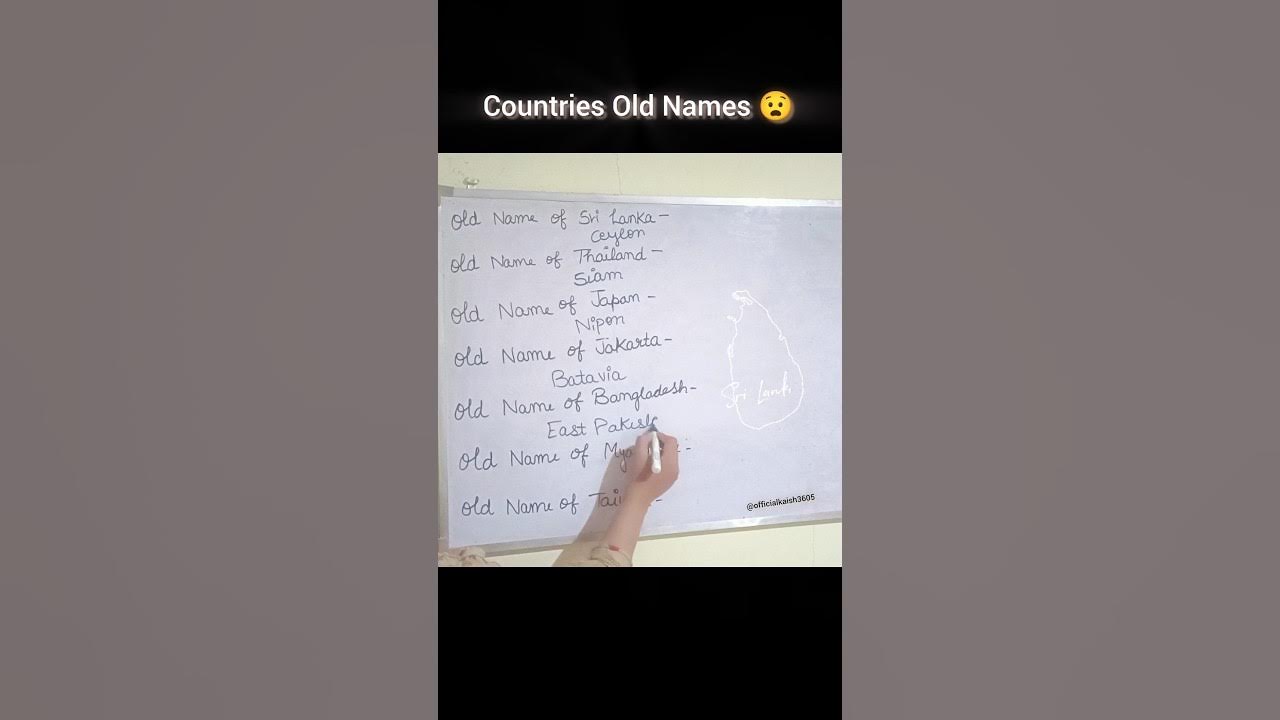 Countries Old Names 😧
Old Name of Sri Lanka –
Ceylon
Old Name of Thailand –
Siam
Old Name of Japan –
Nipon
Old Name of Jakarta –
Batavia
Old Name of Bangladesh –
East
Old Name of
Sri Lanka
Old Name of
@officialkaish3605